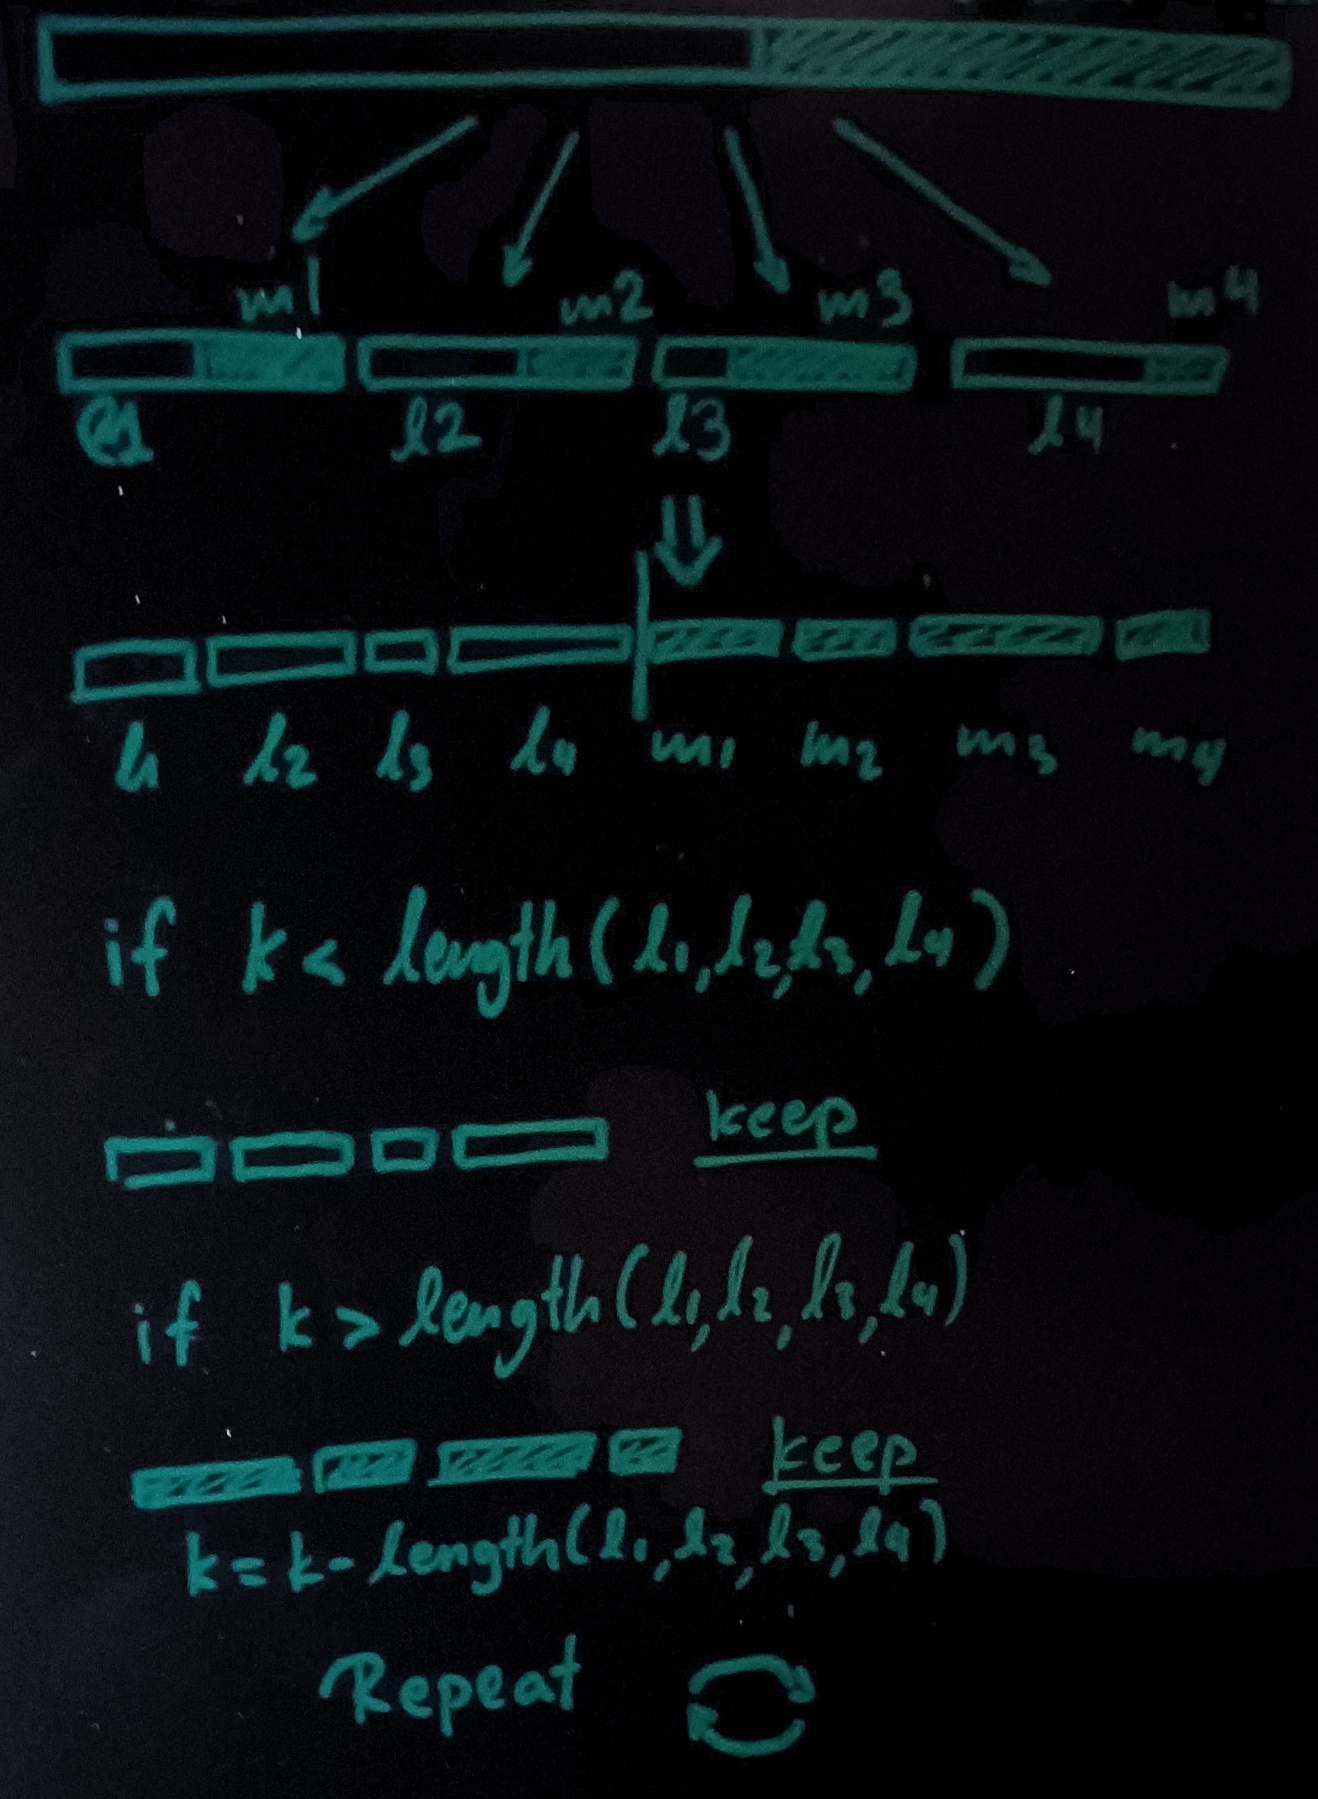 m1 m2 m3 m4
l1 l2 l3 l4
l1 l2 l3 l4 m1 m2 m3 m4
if k < length(l1, l2, l3, l4)
keep
if k > length(l1, l2, l3, l4)
keep
k = k - length(l1, l2, l3, l4)
Repeat